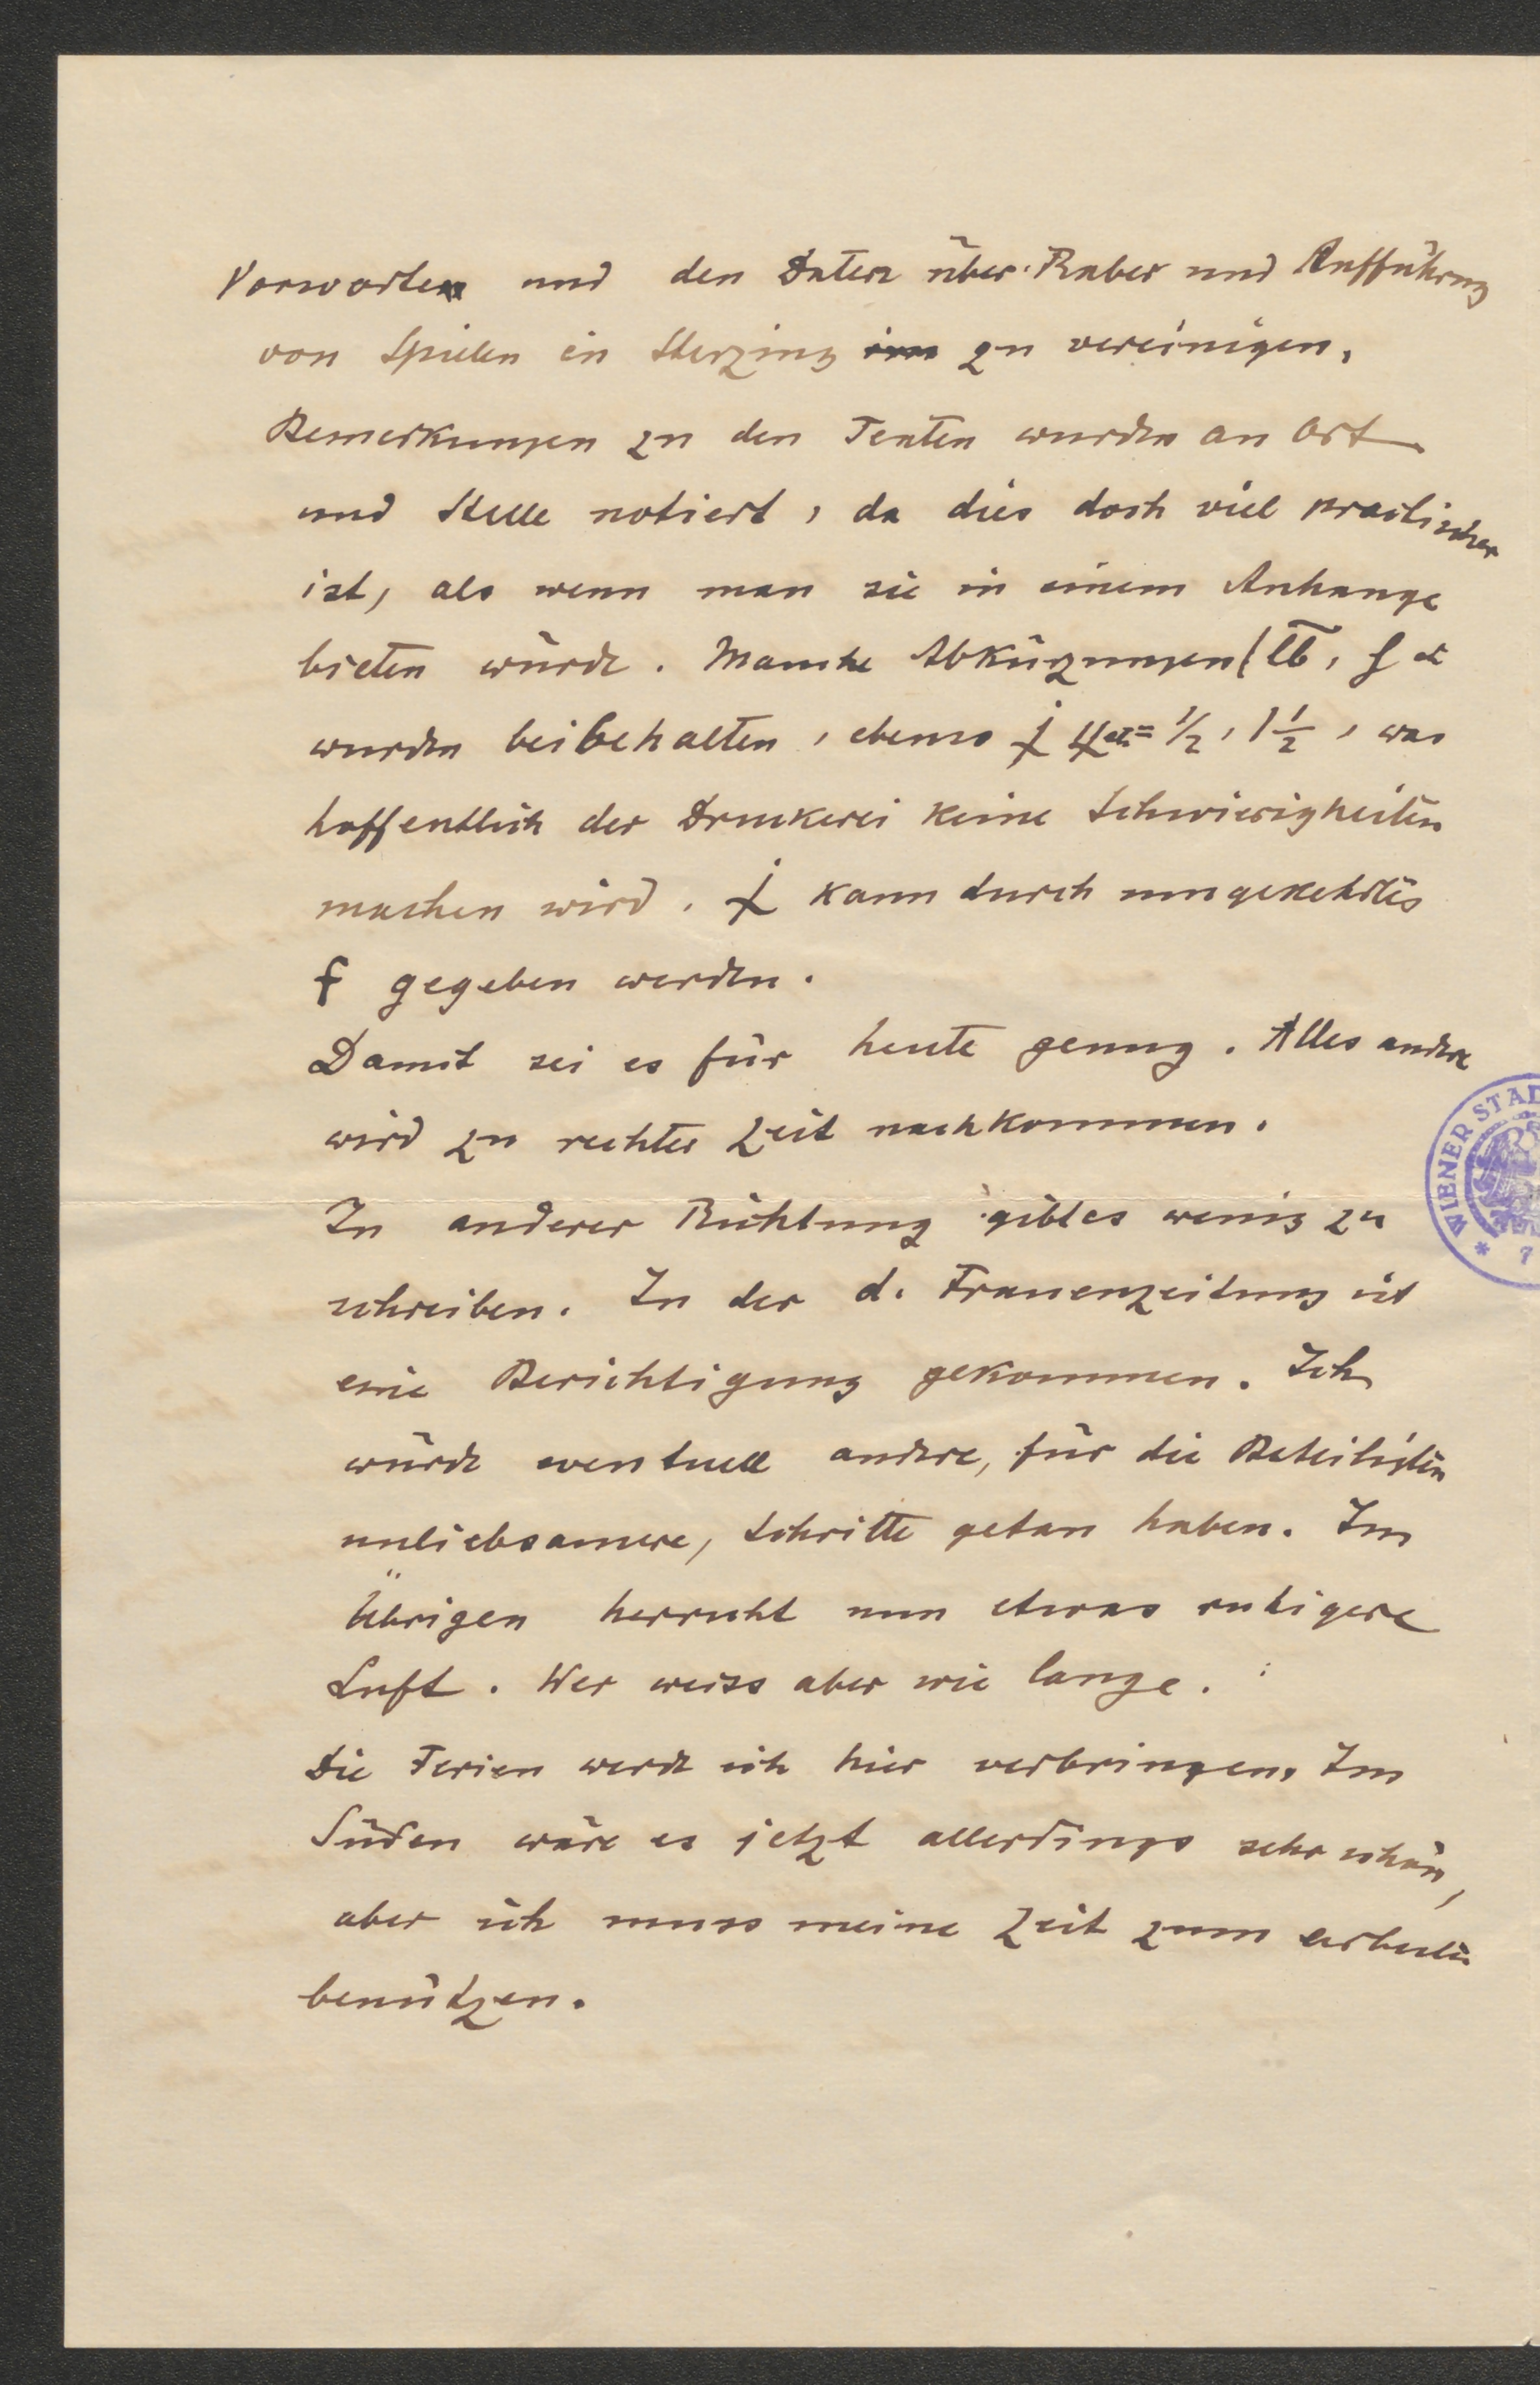 Vorworten und den Daten über Raber und Aufführung
von Spielen in Sterzing zu vereinigen.
Bemerkungen zu den Texten wurden an Ort
und Stelle notiert, da dies doch viel practischer
ist, als wenn man sie in einem Anhange
bieten würde. Manche Abkürzungen (lb, f
wurden beibehalten, ebenso = 1/2, 1 1/2, was
hoffentlich der Druckerei keine Schwierigkeiten
machen wird. kann durch umgekehrtes
f gegeben werden.
Damit sei es für heute genug. Alles andere
wird zu rechter Zeit nachkommen.
In anderer Richtung gibt es wenig zu
schreiben. In der d. Frauenzeitung ist
eine Berichtigung gekommen. Ich
würde eventuell andere, für die Beteiligten
unliebsamere, Schritte getan haben. Im
Übrigen herrscht nun etwas ruhigere
Luft. Wer weiss aber wie lange.
Die Ferien werde ich hier verbringen. Im
Süden wäre es jetzt allerdings sehr schön,
aber ich muss meine Zeit zum arbeiten
benützen.
WIENER STAD
7